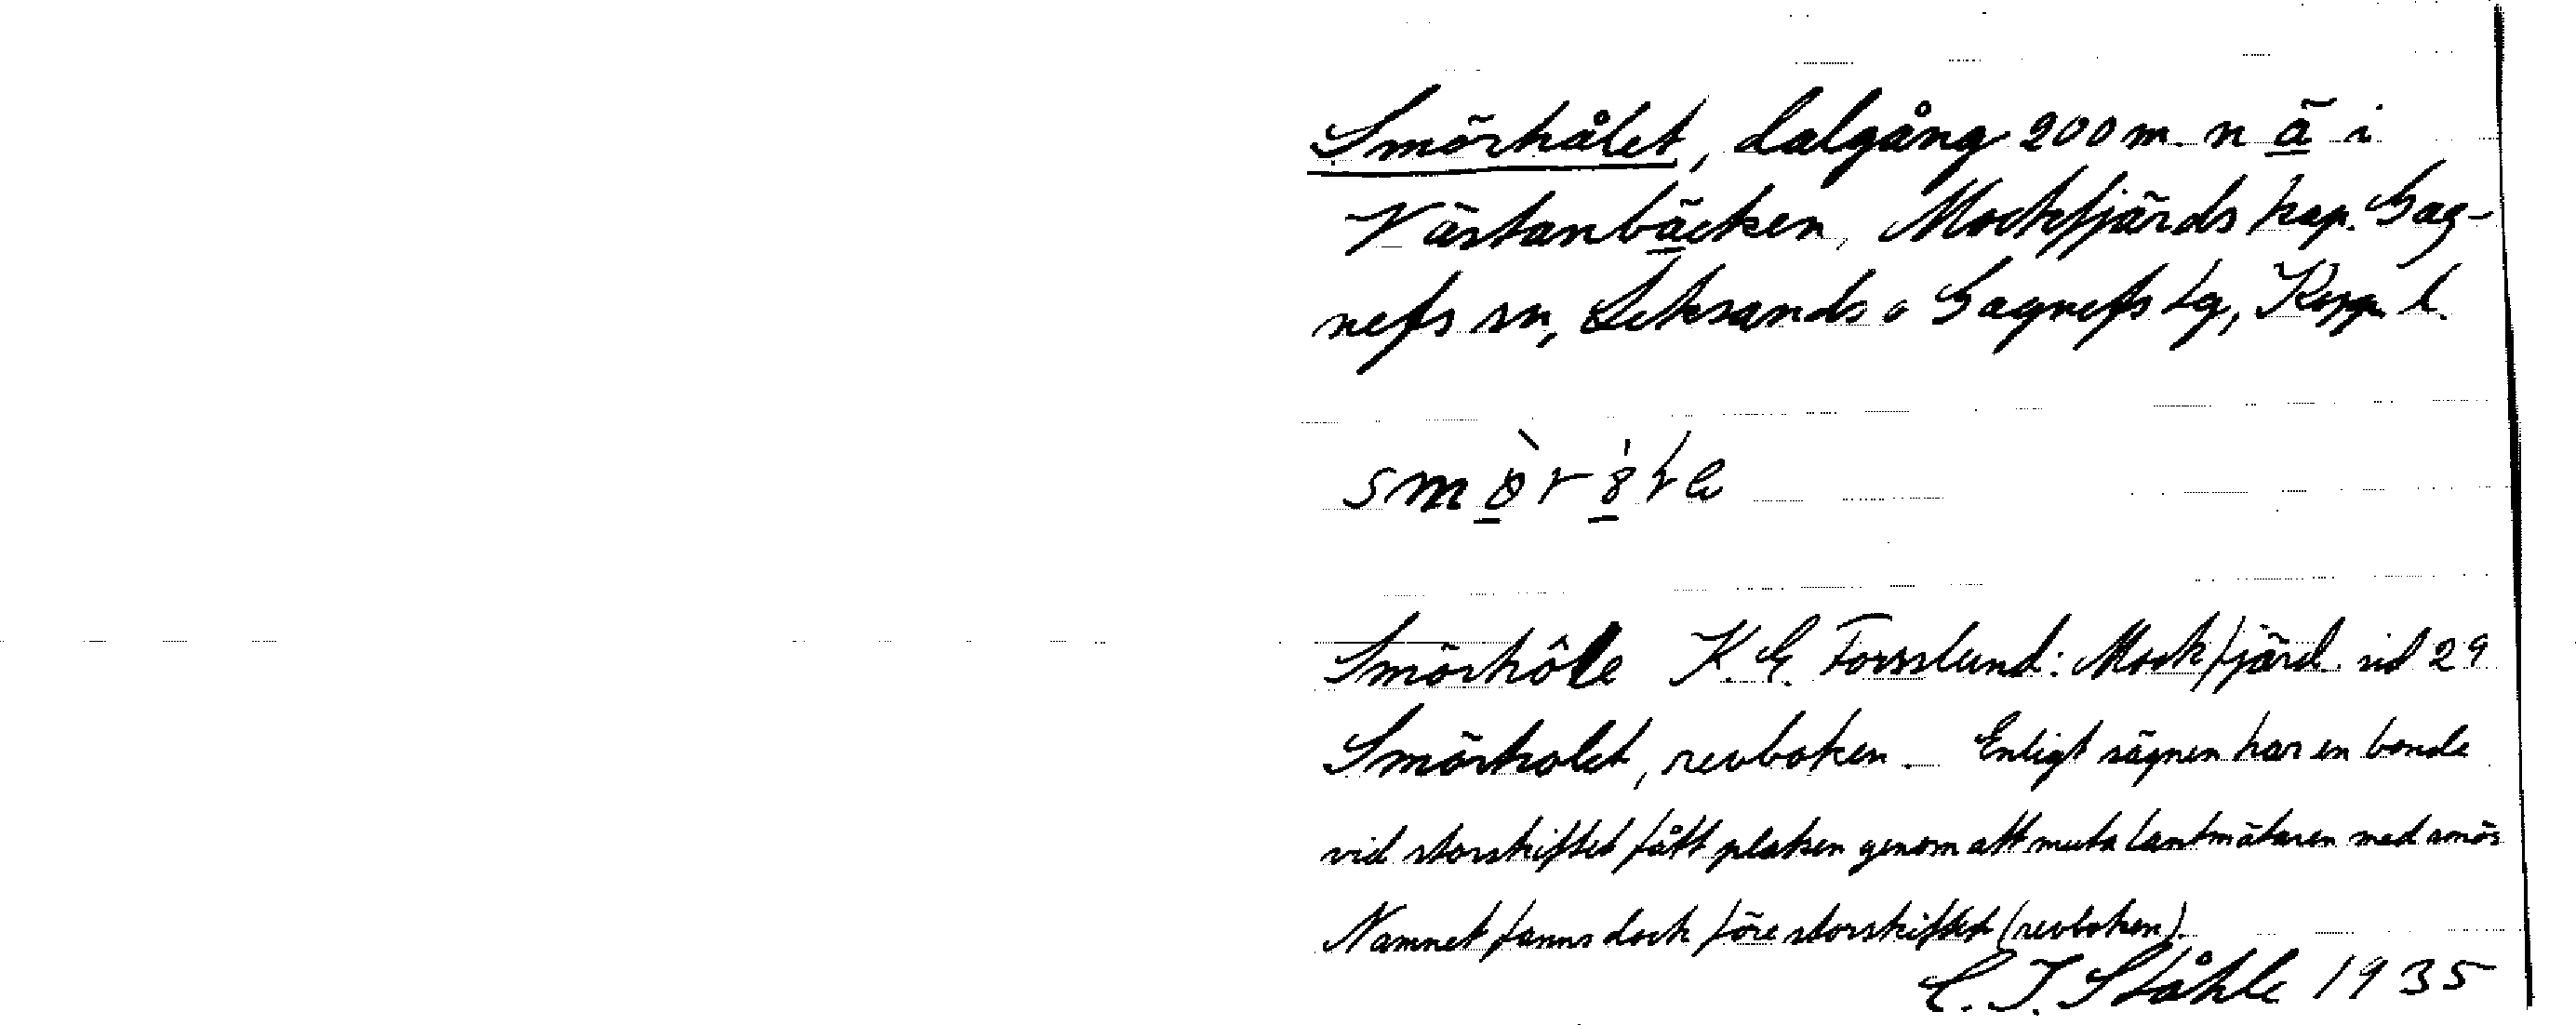 Smörhålet, dalgång 200 m n ä i
Västanbäcken, Mockfjärds kap. Gag-
nefs sn, Leksands o Gagnefs tg, Kopp. l.
Smörhôle K.E. Forsslund: Mockfjärd sid 29
Smörholet, revboken. Enligt sägnen har en bonde
vid storskiftet fått platsen genom att muta lantmätaren med smör
Namnet fanns dock före storskiftet (revboken).
C. I. Ståhle 1935